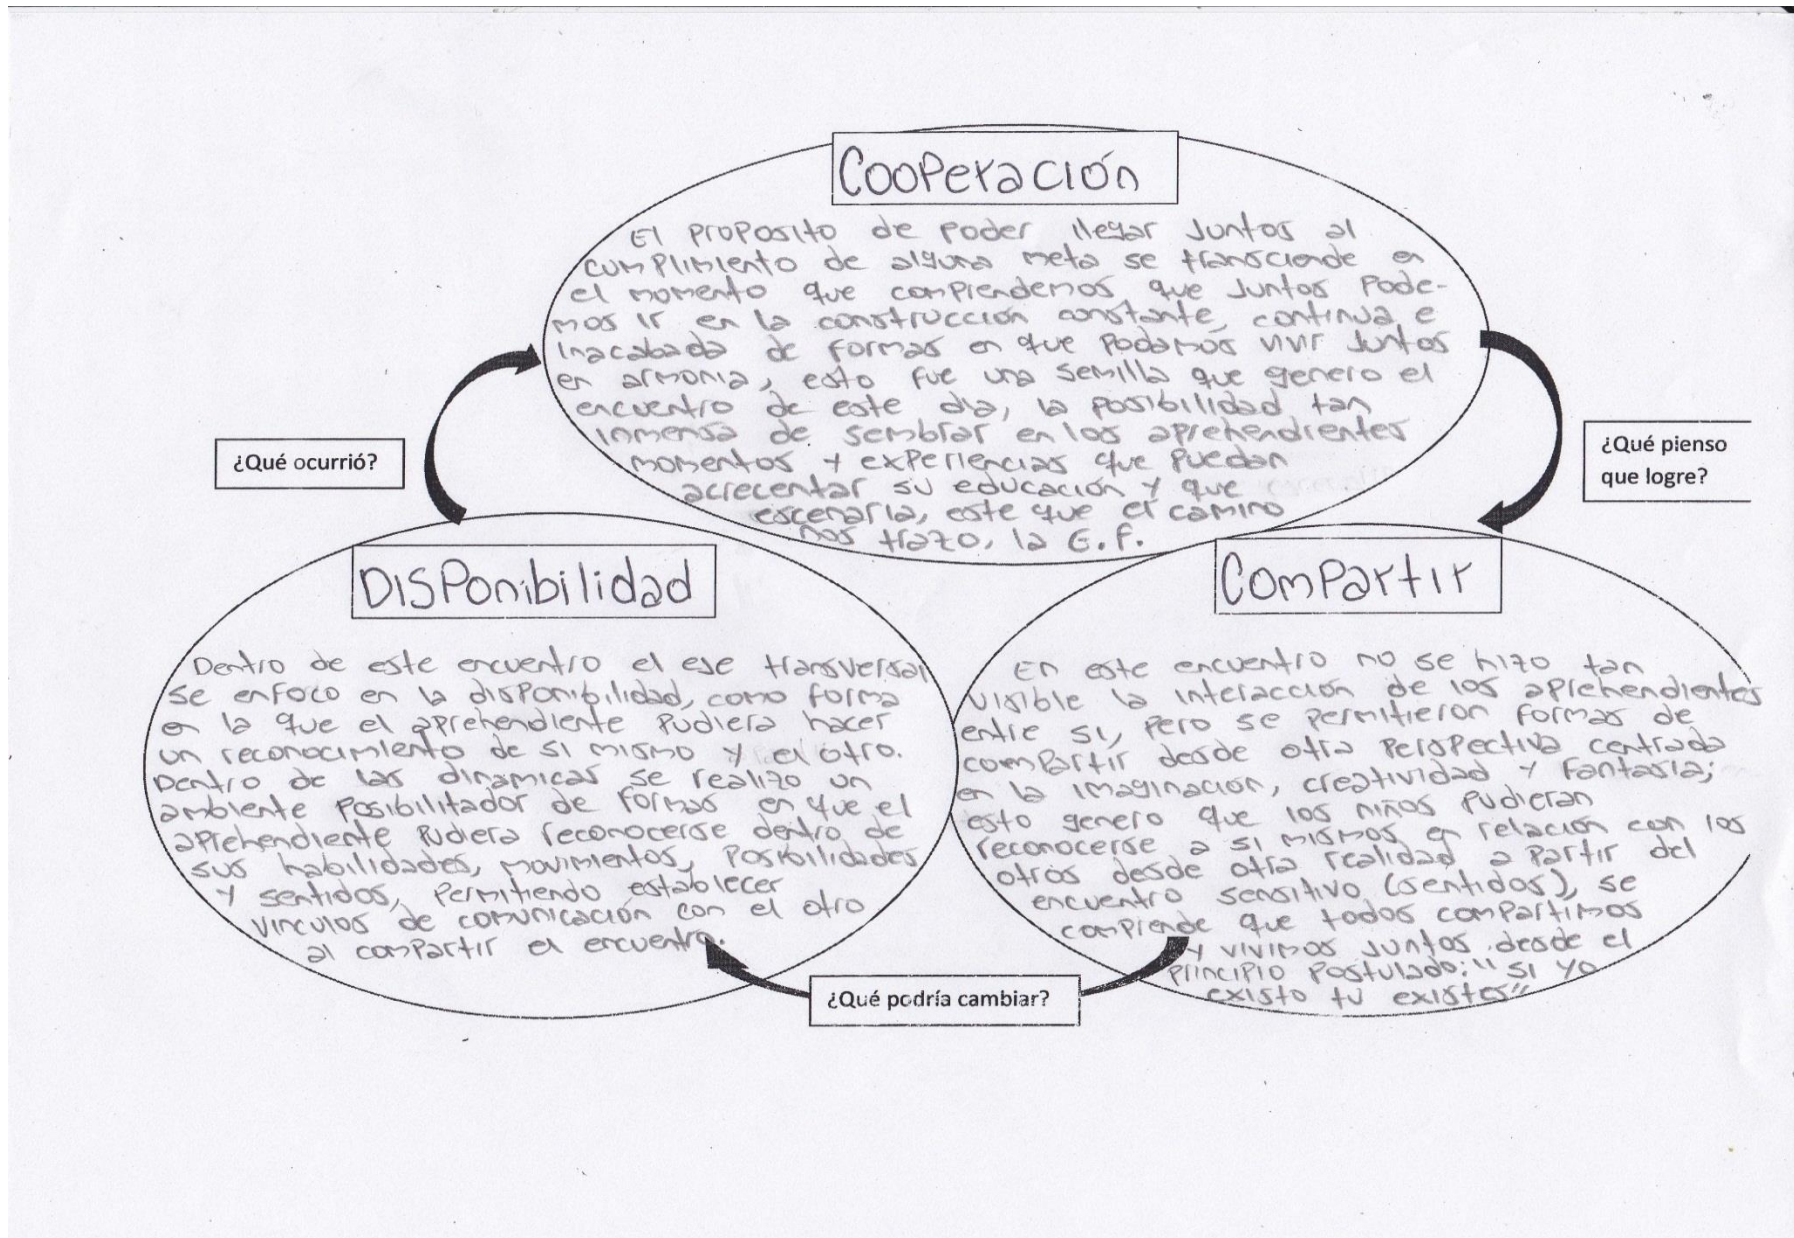 Cooperación
El proposito de poder llegar juntos al
cumplimiento de alguna meta se transciende en
el momento que comprendemos que juntos pode-
mos ir en la construcción constante, continua e
inacabada de formas en que podamos vivir juntos
en armonia, esto fue una semilla que genero el
encuentro de este dia, la posibilidad tan
inmensa de sembrar en los aprehendientes
momentos y experiencias que puedan
acrecentar su educación y que
escenaria, este que el camino
nos trazo, la E.F.
¿Qué ocurrió?
¿Qué pienso
que logre?
Disponibilidad
Dentro de este encuentro el eje transversal
se enfoco en la disponibilidad, como forma
en la que el aprehendiente pudiera hacer
un reconocimiento de si mismo y el otro.
Dentro de las dinamicas se realizo un
ambiente posibilitador de formas en que el
aprehendiente pudiera reconocerse dentro de
sus habilidades, movimientos, posibilidades
y sentidos, permitiendo establecer
vinculos de comunicación con el otro
al compartir el encuentro.
Compartir
En este encuentro no se hizo tan
visible la interacción de los aprehendientes
entre si, pero se permitieron formas de
compartir desde otra perspectiva centrada
en la imaginación, creatividad y fantasia;
esto genero que los niños pudieran
reconocerse a si mismos en relación con los
otros desde otra realidad a partir del
encuentro sensitivo (sentidos), se
comprende que todos compartimos
y vivimos juntos desde el
principio postulado: "si yo
existo tu existes"
¿Qué podría cambiar?